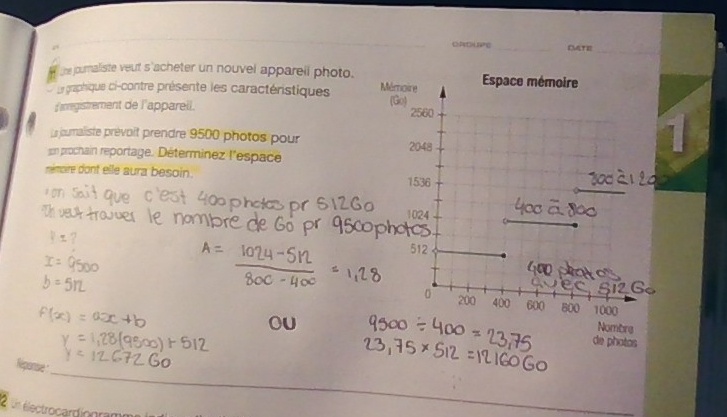 GROUPE DATE
Une journaliste veut s'acheter un nouvel appareil photo.
Le graphique ci-contre présente les caractéristiques
d'enregistrement de l'appareil.
La journaliste prévoit prendre 9500 photos pour
son prochain reportage. Déterminez l'espace
mémoire dont elle aura besoin.
on sait que c'est 400 photos pr 512Go
On veut trouver le nombre de Go pr 9500 photos
P = ?
x = 9500
b = 512
A = 1024 - 512 / 800 - 400 = 1,28
f(x) = ax + b
y = 1,28(9500) + 512
y = 12672 Go
OU
9500 ÷ 400 = 23,75
23,75 × 512 = 12160 GO
Réponse :
Espace mémoire
Mémoire
(Go)
2560
2048
1536
1024
512
0
200 400 600 800 1000
Nombre
de photos
400 à 800
400 photos
avec 512 Go
1
12 Un électrocardiogramme